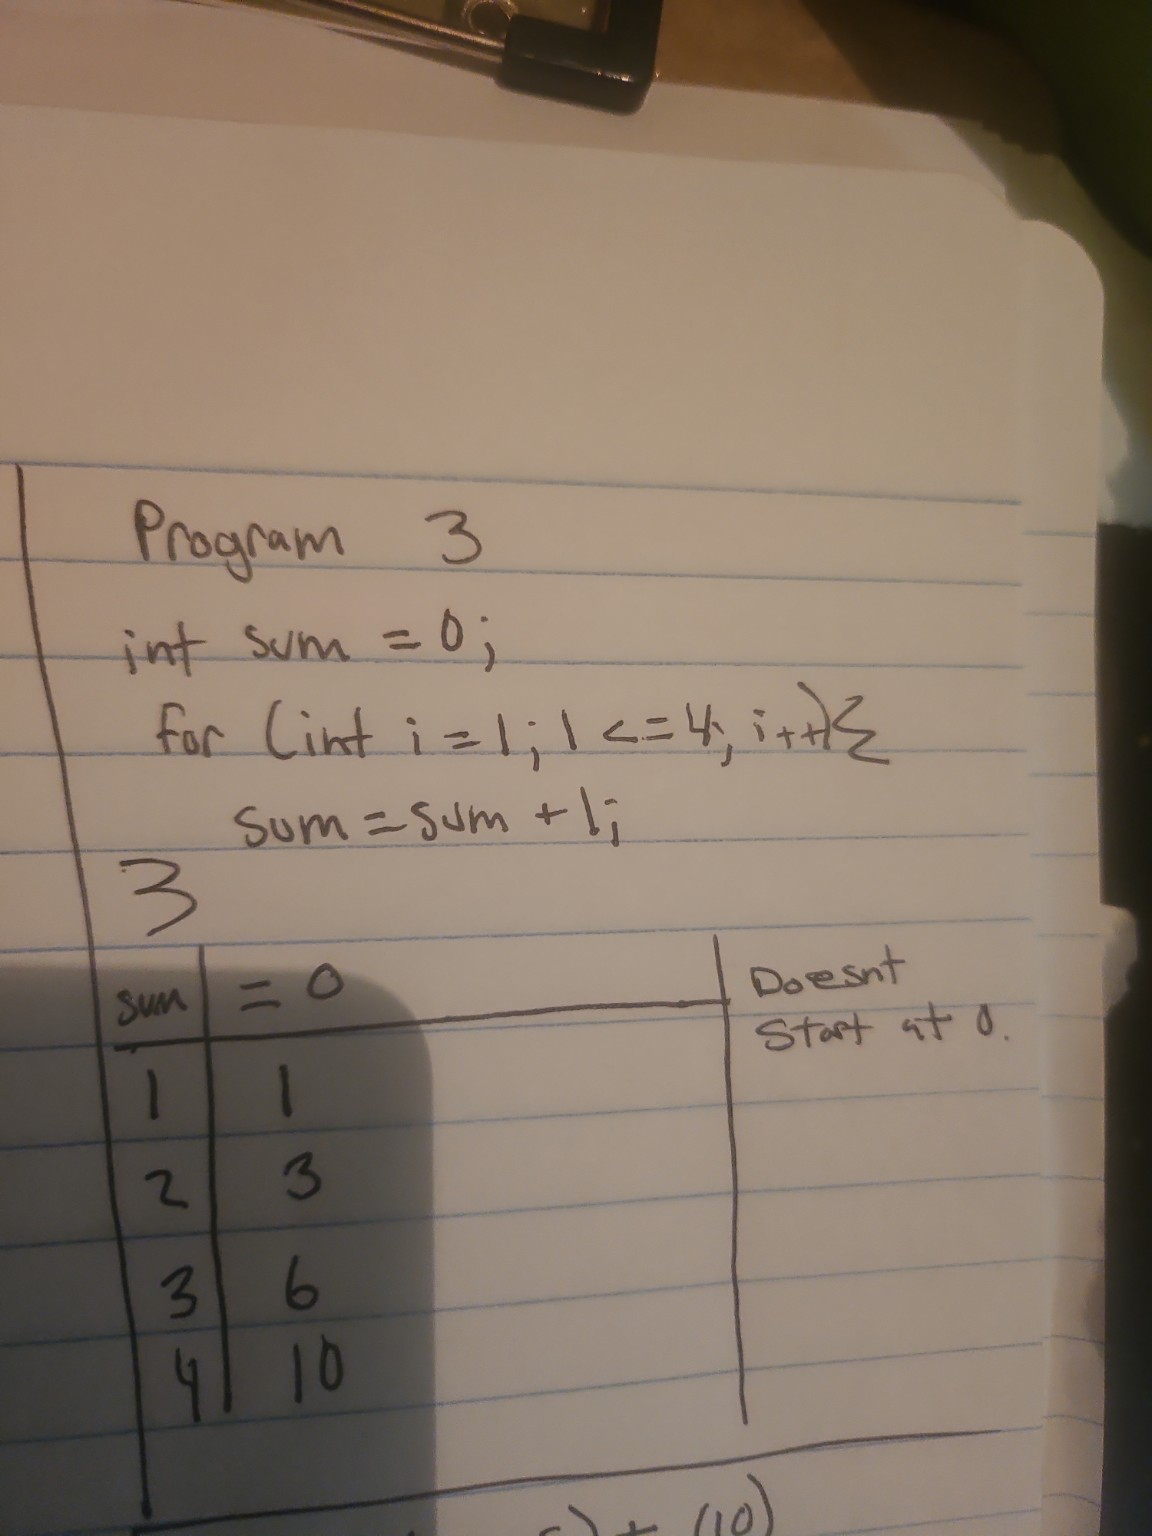 Program 3
int sum = 0;
for (int i = 1; 1 <= 4; i++){
sum = sum + 1;
}
sum = 0
Doesnt
Start at 0.
1 1
2 3
3 6
4 10
) + (10)